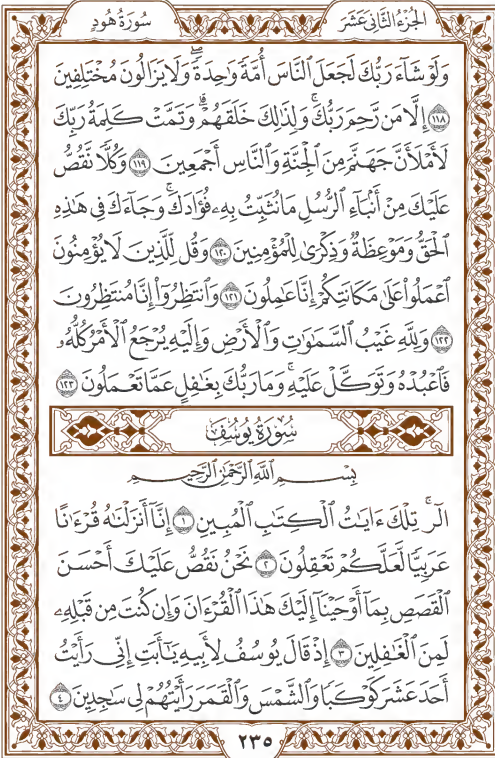 الجُزْءُ الثَّانِي عَشَرَ
سُورَةُ هُودٍ
وَلَوْ شَآءَ رَبُّكَ لَجَعَلَ ٱلنَّاسَ أُمَّةً وَٰحِدَةًۖ وَلَا يَزَالُونَ مُخْتَلِفِينَ
١١٨ إِلَّا مَن رَّحِمَ رَبُّكَۚ وَلِذَٰلِكَ خَلَقَهُمْۗ وَتَمَّتْ كَلِمَةُ رَبِّكَ
لَأَمْلَأَنَّ جَهَنَّمَ مِنَ ٱلْجِنَّةِ وَٱلنَّاسِ أَجْمَعِينَ ١١٩ وَكُلًّا نَّقُصُّ
عَلَيْكَ مِنْ أَنۢبَآءِ ٱلرُّسُلِ مَا نُثَبِّتُ بِهِۦ فُؤَادَكَۚ وَجَآءَكَ فِى هَٰذِهِ
ٱلْحَقُّ وَمَوْعِظَةٌ وَذِكْرَىٰ لِلْمُؤْمِنِينَ ١٢٠ وَقُل لِّلَّذِينَ لَا يُؤْمِنُونَ
ٱعْمَلُوا۟ عَلَىٰ مَكَانَتِكُمْ إِنَّا عَٰمِلُونَ ١٢١ وَٱنتَظِرُوٓا۟ إِنَّا مُنتَظِرُونَ
١٢٢ وَلِلَّهِ غَيْبُ ٱلسَّمَٰوَٰتِ وَٱلْأَرْضِ وَإِلَيْهِ يُرْجَعُ ٱلْأَمْرُ كُلُّهُۥ
فَٱعْبُدْهُ وَتَوَكَّلْ عَلَيْهِۚ وَمَا رَبُّكَ بِغَٰفِلٍ عَمَّا تَعْمَلُونَ ١٢٣
سُورَةُ يُوسُفَ
بِسْمِ ٱللَّهِ ٱلرَّحْمَٰنِ ٱلرَّحِيمِ
الٓرۚ تِلْكَ ءَايَٰتُ ٱلْكِتَٰبِ ٱلْمُبِينِ ١ إِنَّآ أَنزَلْنَٰهُ قُرْءَٰنًا
عَرَبِيًّا لَّعَلَّكُمْ تَعْقِلُونَ ٢ نَحْنُ نَقُصُّ عَلَيْكَ أَحْسَنَ
ٱلْقَصَصِ بِمَآ أَوْحَيْنَآ إِلَيْكَ هَٰذَا ٱلْقُرْءَانَ وَإِن كُنتَ مِن قَبْلِهِۦ
لَمِنَ ٱلْغَٰفِلِينَ ٣ إِذْ قَالَ يُوسُفُ لِأَبِيهِ يَٰٓأَبَتِ إِنِّى رَأَيْتُ
أَحَدَ عَشَرَ كَوْكَبًا وَٱلشَّمْسَ وَٱلْقَمَرَ رَأَيْتُهُمْ لِى سَٰجِدِينَ ٤
٢٣٥